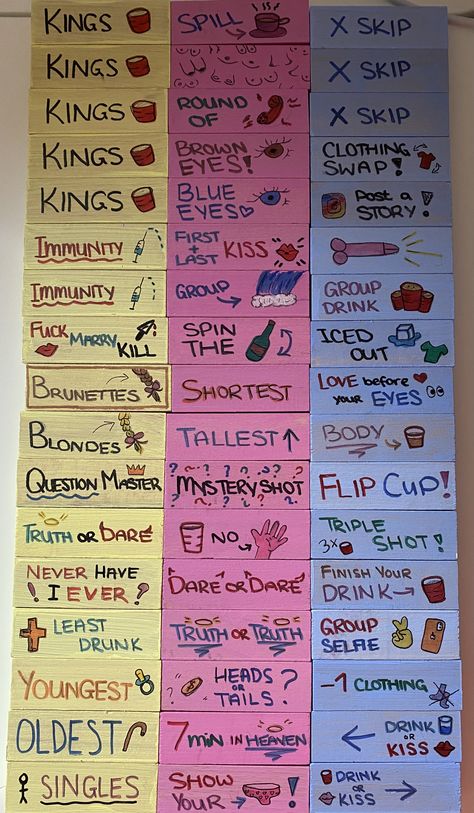 KINGS
KINGS
KINGS
KINGS
KINGS
IMMUNITY
IMMUNITY
FUCK MARRY KILL
BRUNETTES
BLONDES
QUESTION MASTER
TRUTH OR DARE
NEVER HAVE
! I EVER?
LEAST
DRUNK
YOUNGEST
OLDEST
SINGLES
SPILL
ROUND
OF
BROWN
EYES!
BLUE
EYES
FIRST
+
LAST KISS
GROUP
SPIN
THE
SHORTEST
TALLEST
MYSTERY SHOT
NO
DARE OR DARE
TRUTH OR TRUTH
HEADS
OR
TAILS?
7 MIN IN HEAVEN
SHOW
YOUR !
X SKIP
X SKIP
X SKIP
CLOTHING
SWAP!
Post a
STORY!
GROUP
DRINK
ICED
OUT
LOVE before
your EYES
BODY
FLIP CUP!
TRIPLE
3x SHOT!
FINISH YOUR
DRINK
GROUP
SELFIE
-1 CLOTHING
DRINK
OR
KISS
DRINK
OR
KISS